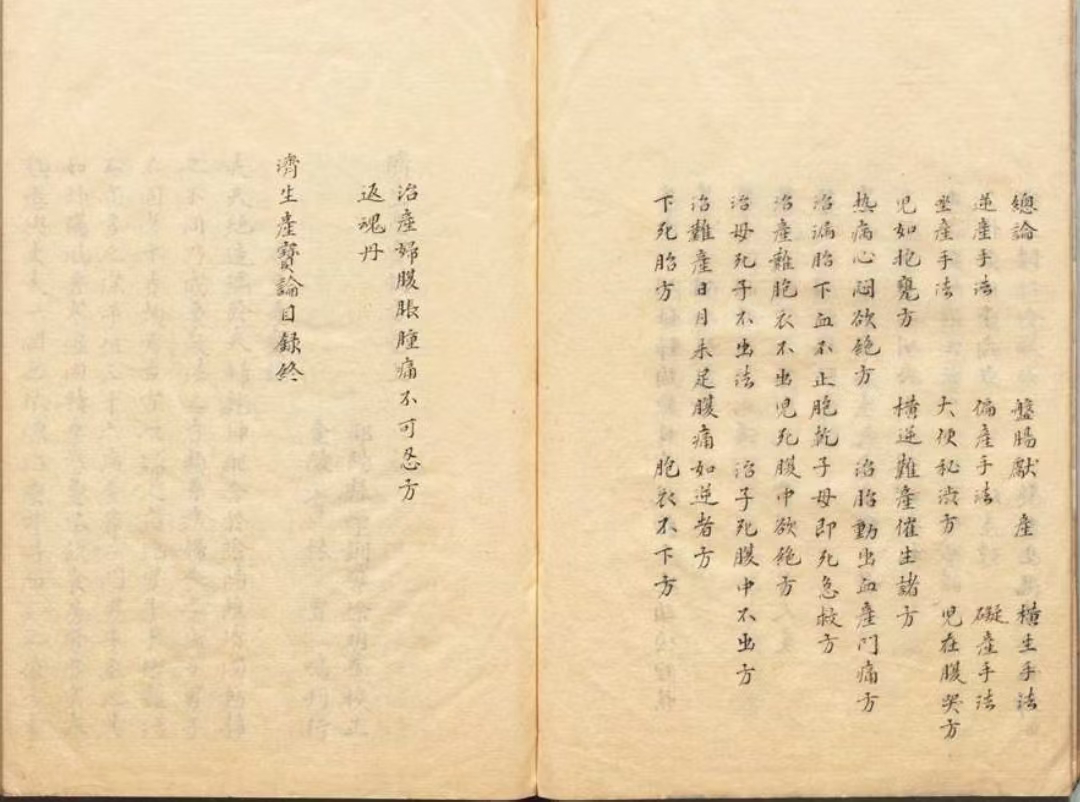 總論 盤腸獻產 橫生手法
逆產手法 偏產手法 礙產手法
坐產手法 大便秘澁方 兒在腹哭方
兒如抱甕方 橫逆難產催生諸方
熱病心悶欲絶方 治胎動出血產門痛方
治漏胎下血不止胞乾子母即死急救方
治產難胞衣不出兒死腹中欲絶方
治母死子不出法 治子死腹中不出方
治難產日月未足腹痛如逆者方
下死胎方 胞衣不下方
治產婦腹脹腫痛不可忍方
返魂丹
濟生產寶論目録終